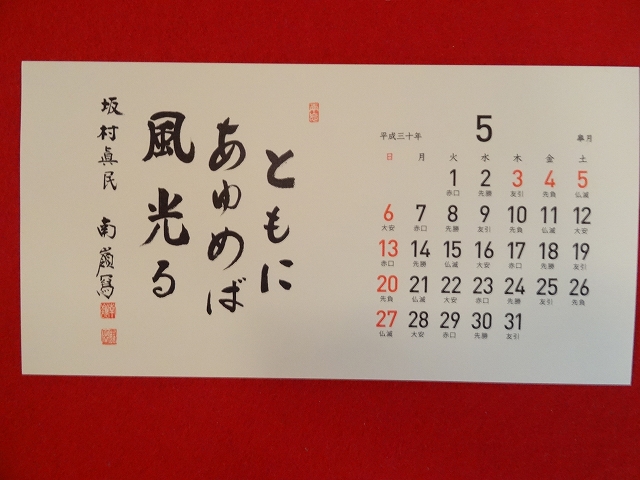 ともに
あゆめば
風光る
坂村眞民 南嶺寫
平成三十年 5 皐月
日 月 火 水 木 金 土
1 2 3 4 5
赤口 先勝 友引 先負 仏滅
6 7 8 9 10 11 12
大安 赤口 先勝 友引 先負 仏滅 大安
13 14 15 16 17 18 19
赤口 先勝 仏滅 大安 赤口 先勝 友引
20 21 22 23 24 25 26
先負 仏滅 大安 赤口 先勝 友引 先負
27 28 29 30 31
仏滅 大安 赤口 先勝 友引